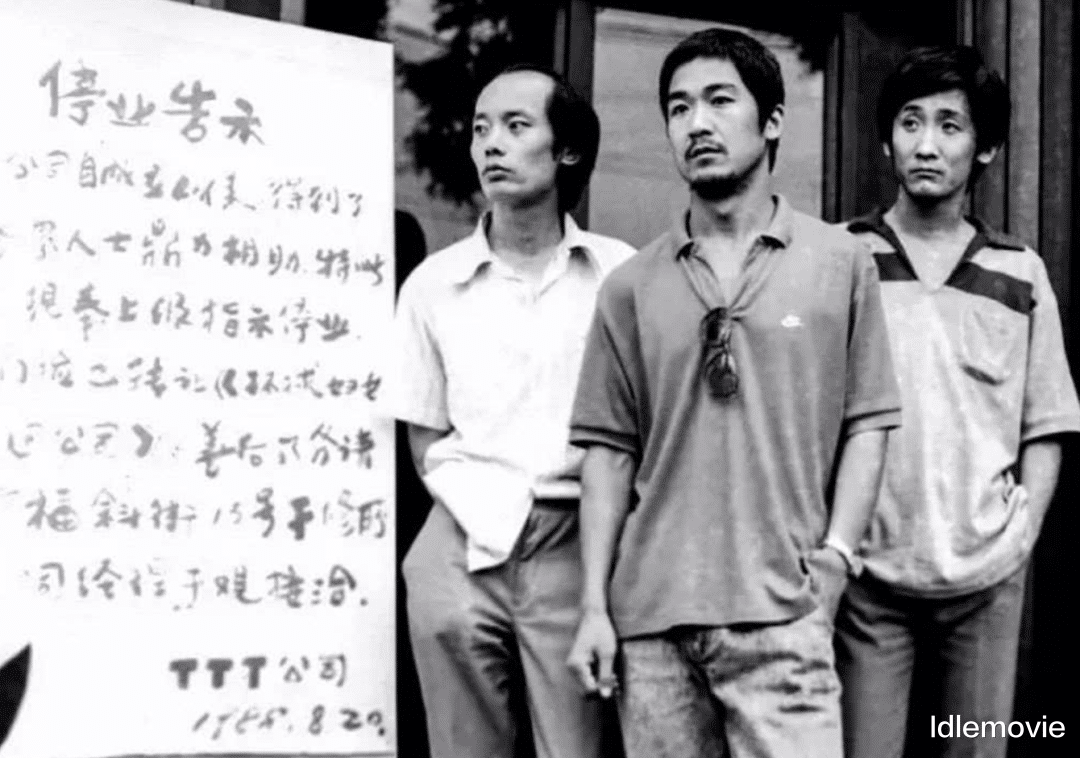 停业告示
公司自成立以来,得到了
各界人士鼎力相助.特此
现奉上级指示停业.
门垃已转让《环球妇女
公司》.善后事务请
福斜街15号于修配
司经理于观接洽.
TTT公司
1988.8.20.
Idlemovie